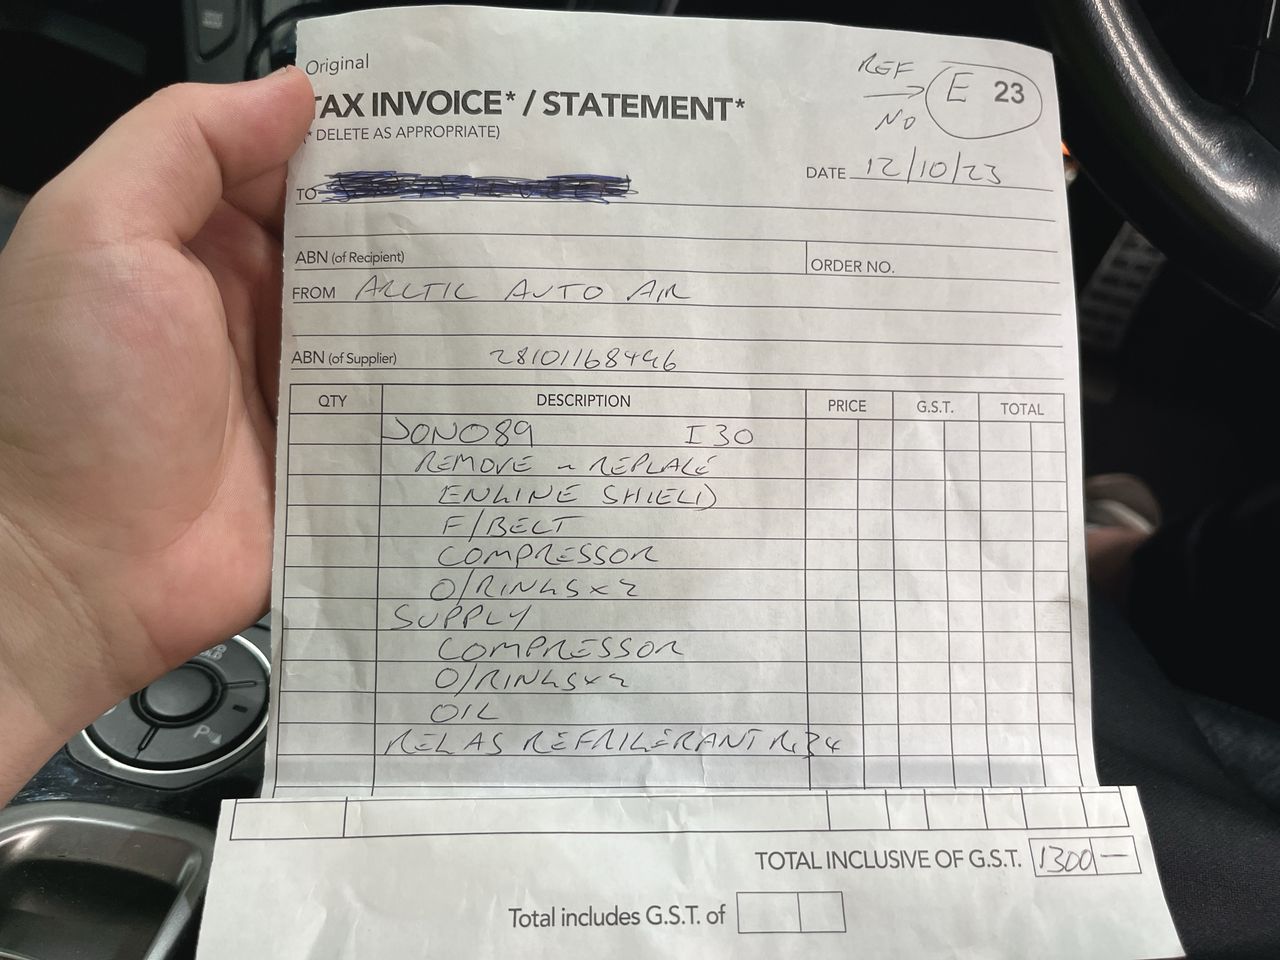 Original
REF
NO
E 23
TAX INVOICE* / STATEMENT*
(* DELETE AS APPROPRIATE)
DATE 12/10/23
TO
ABN (of Recipient)
ORDER NO.
FROM ARCTIC AUTO AIR
ABN (of Supplier) 28101168496
QTY DESCRIPTION PRICE G.S.T. TOTAL
JONO89 I30
REMOVE ~ REPLACE
ENGINE SHIELD
F/BELT
COMPRESSOR
O/RINGS x 2
SUPPLY
COMPRESSOR
O/RINGS x 2
OIL
REGAS REFRIGERANT R134
TOTAL INCLUSIVE OF G.S.T. 1300 —
Total includes G.S.T. of